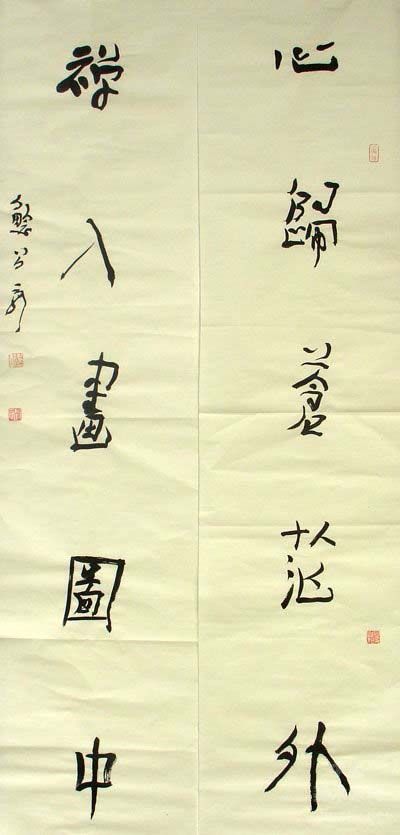 心歸蒼茫外
禪入畫圖中